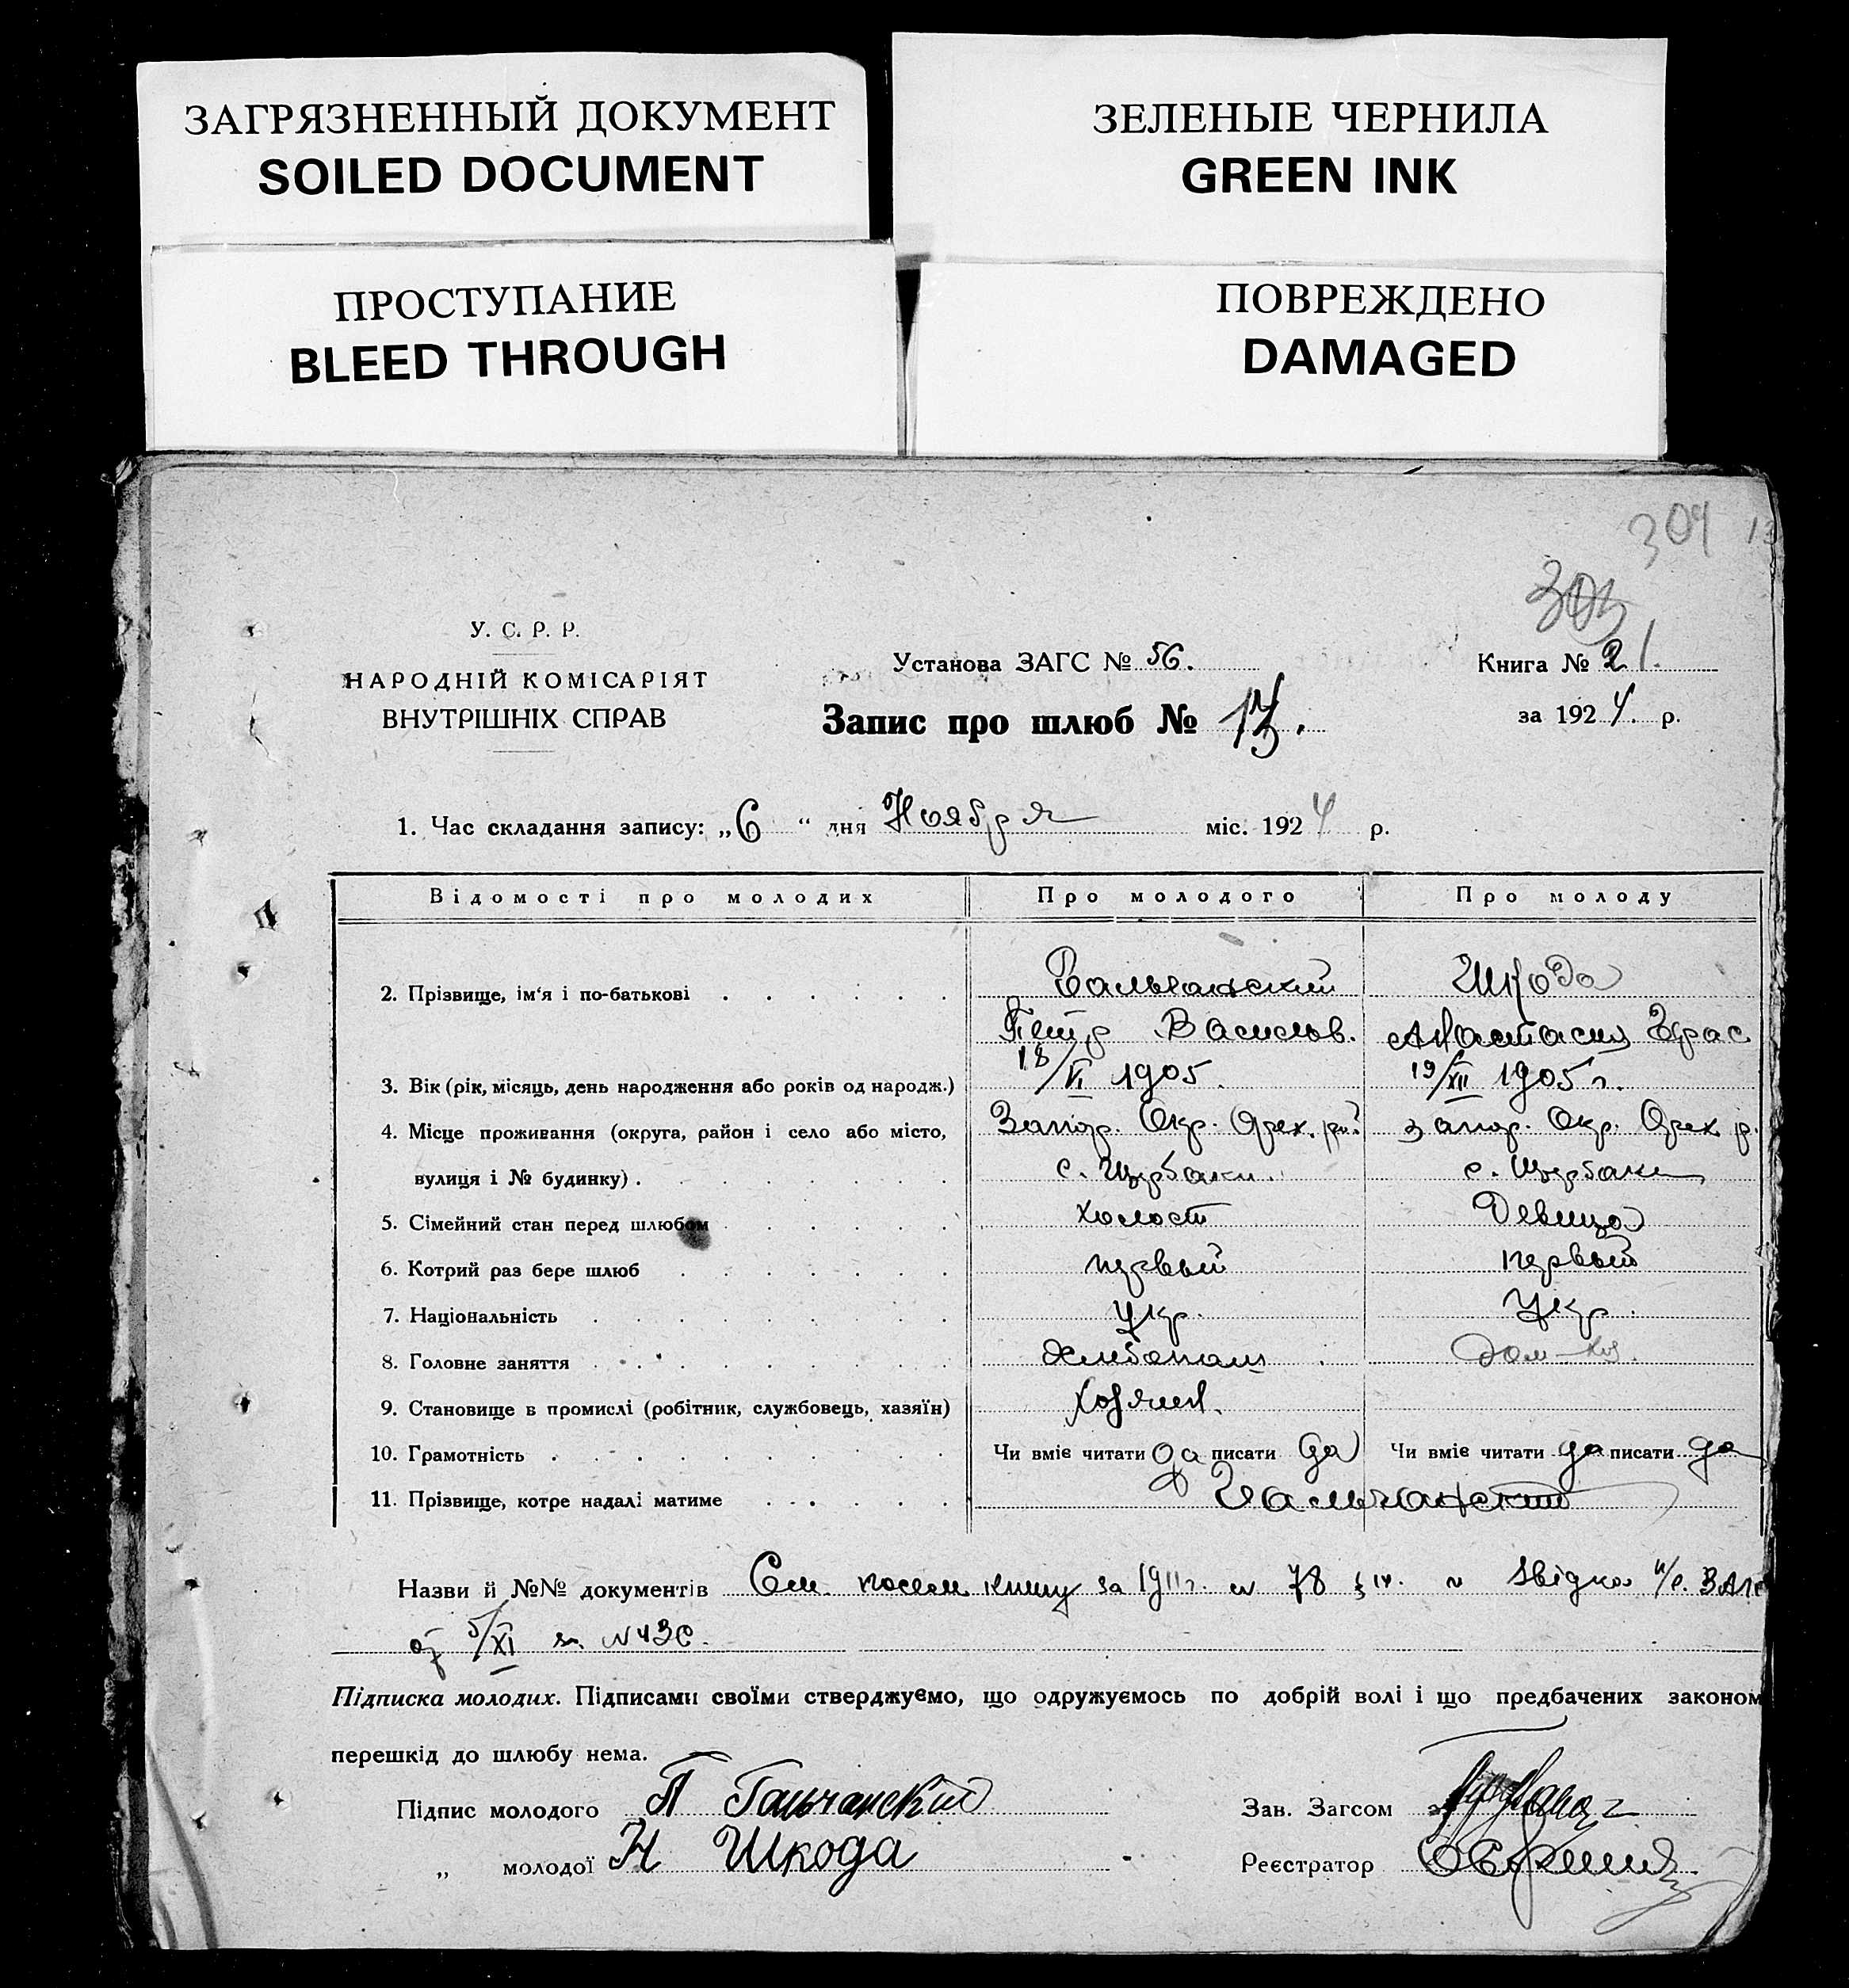 ЗАГРЯЗНЕННЫЙ ДОКУМЕНТ
SOILED DOCUMENT
ЗЕЛЕНЫЕ ЧЕРНИЛА
GREEN INK
ПРОСТУПАНИЕ
BLEED THROUGH
ПОВРЕЖДЕНО
DAMAGED
304 13
303
У. С. Р. Р.
НАРОДНІЙ КОМІСАРІЯТ
ВНУТРІШНІХ СПРАВ
Установа ЗАГС № 56.
Запис про шлюб № 13.
Книга № 21.
за 1924. р.
1. Час складання запису: „6“ дня Ноября міс. 1924 р.
Відомості про молодих Про молодого Про молоду
2. Прізвище, ім'я і по-батькові Гальчанский Шкода
Петр Васильов. Анастасия Герас.
3. Вік (рік, місяць, день народження або років од народж.) 18/VI 1905. 19/XII 1905 г.
4. Місце проживання (округа, район і село або місто, Запор. Окр. Орех. рн. Запор. Окр. Орех. р.
вулиця і № будинку). с. Щербаки. с. Щербаки
5. Сімейний стан перед шлюбом холост Девица
6. Котрий раз бере шлюб первый первый
7. Національність Укр. Укр.
8. Головне заняття Хлебопаш. Дом-хоз.
9. Становище в промислі (робітник, службовець, хазяїн) Хозяин.
10. Грамотність Чи вміє читати да писати да Чи вміє читати да писати да
11. Прізвище, котре надалі матиме Гальчанский
Назви й №№ документів См. посем. книгу за 1911 г. № 78 звідка ЗАГС
от 5/XI за № 430.
Підписка молодих. Підписами своїми стверджуємо, що одружуємось по добрій волі і що предбачених законом
перешкід до шлюбу нема.
Підпис молодого П Гальчанский Зав. Загсом
„ молодої Н Шкода Реєстратор